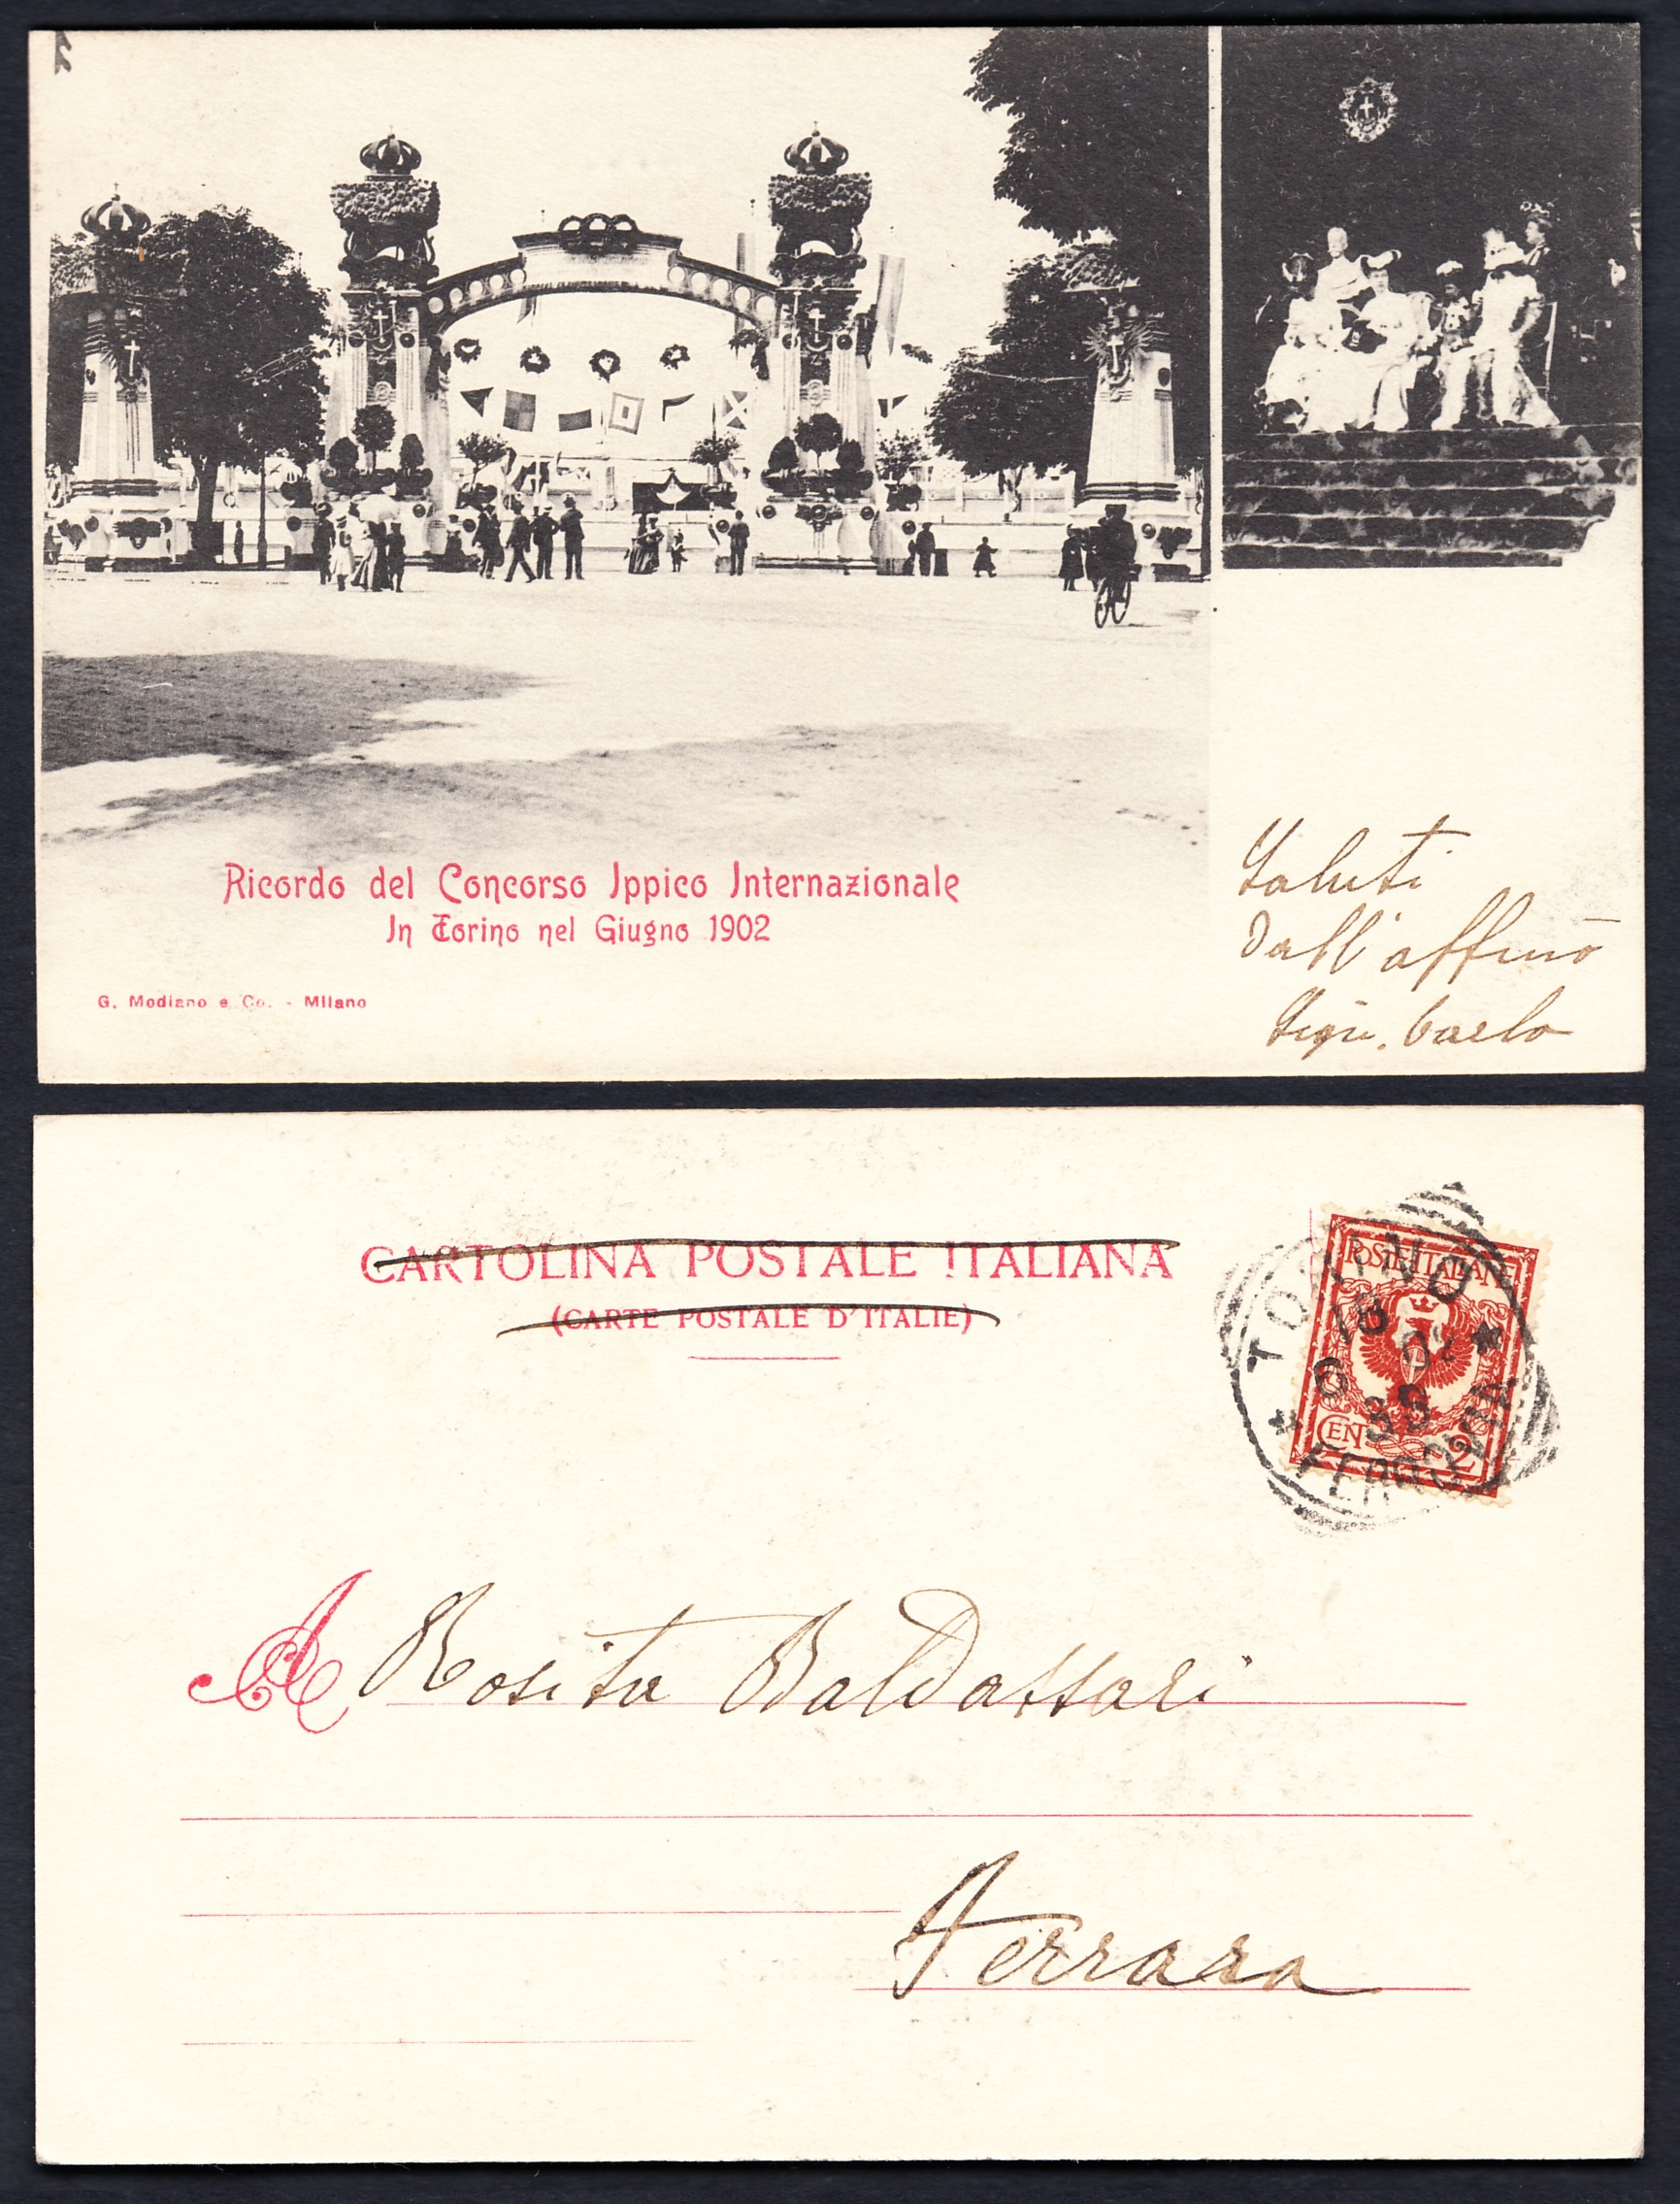 Ricordo del Concorso Ippico Internazionale
In Torino nel Giugno 1902
G. Modiano e Co. - Milano
Saluti
dall'affmo
Carlo
CARTOLINA POSTALE ITALIANA
(CARTE POSTALE D'ITALIE)
POSTE ITALIANE
CEN 2
TORINO
FERROVIA
A Rosita Baldassari
Ferrara